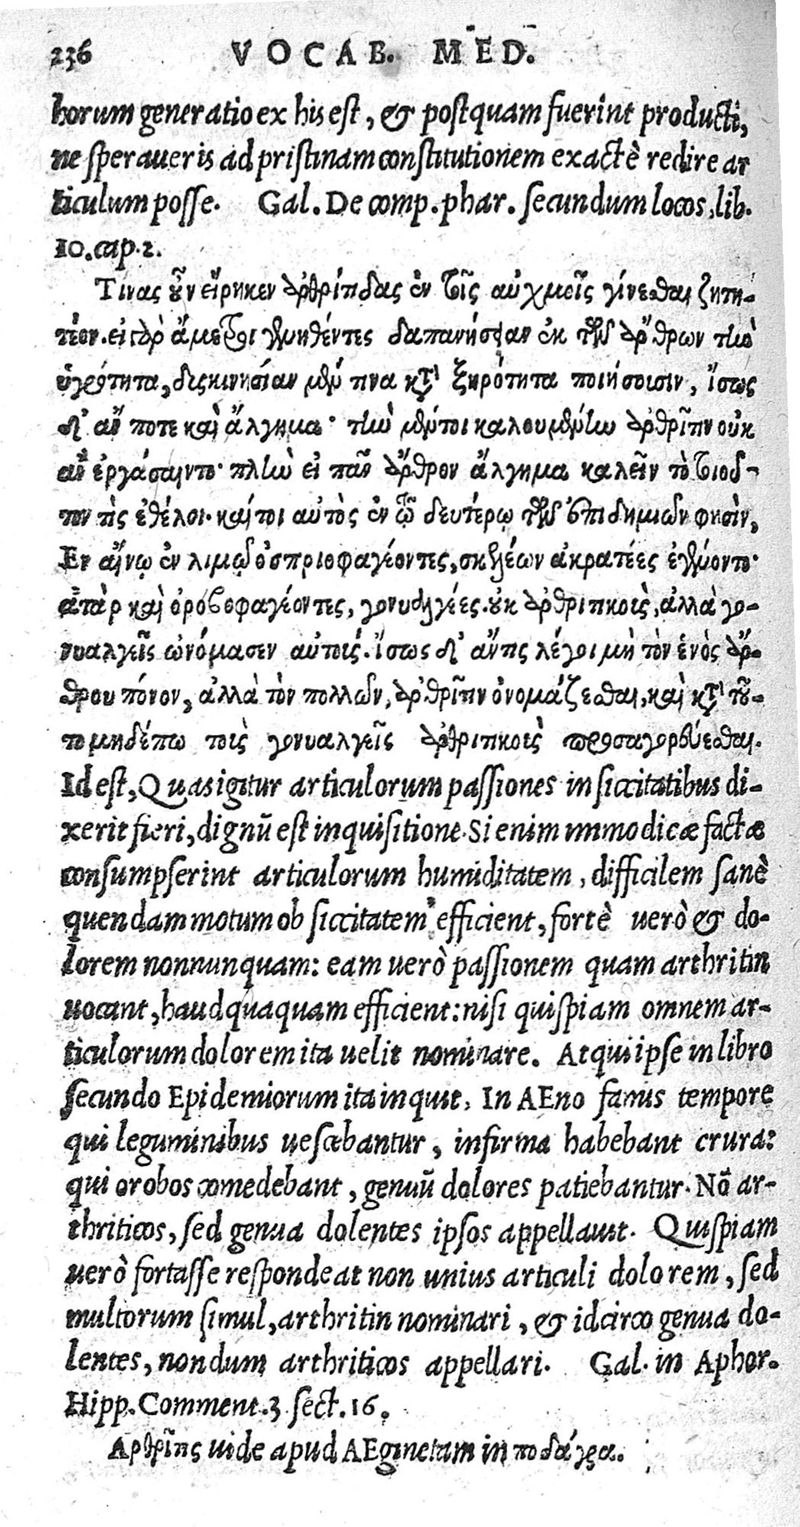 236 VOCAB. MED.
horum generatio ex his est, & postquam fuerint producti,
ne speraueris ad pristinam constitutionem exactè redire ar
ticulum posse. Gal. De comp. phar. secundum locos, lib.
10. cap. 2.
Τίνας οὖν εἴρηκεν ἀρθρίτιδας ἐν τοῖς αὐχμοῖς γίνεσθαι ζητη-
τέον. εἰ γὰρ ἄμετροι γενηθέντες δαπανήσειαν ἐκ τῶν ἄρθρων τὴν
ὑγρότητα, δυσκινησίαν μὲν τινα κατὰ ξηρότητα ποιήσουσιν, ἴσως
δ' ἄν ποτε καὶ ἄλγημα· τὴν μέντοι καλουμένην ἀρθρῖτιν οὐκ
ἂν ἐργάσαιντο· πλὴν εἰ πᾶν ἄρθρον ἄλγημα καλεῖν τὸ τοιοῦ-
τον τὶς ἐθέλοι. καίτοι αὐτὸς ἐν τῷ δευτέρῳ τῶν ἐπιδημιῶν φησὶν,
Εν αἴνῳ ἐν λιμῷ ὀσπριοφαγέοντες, σκελέων ἀκρατέες ἐγένοντο·
ἀτὰρ καὶ ὀροβοφαγέοντες, γονυαλγίες. οὐκ ἀρθριτικοὶς, ἀλλὰ γο-
νυαλγεῖς ὠνόμασεν αὐτοὶς. ἴσως δ' ἄν τις λέγοι μὴ τὸν ἑνὸς ἄρ-
θρου πόνον, ἀλλὰ τὸν πολλῶν, ἀρθρῖτιν ὀνομάζεσθαι, καὶ κατὰ τοῦ-
το μηδέπω τοὶς γονυαλγεῖς ἀρθριτικοὶς προσαγορεύεσθαι.
Id est, Quas igitur articulorum passiones in siccitatibus di-
xerit fieri, dignũ est inquisitione. Si enim immodicæ factæ
consumpserint articulorum humiditatem, difficilem sanè
quendam motum ob siccitatem efficient, fortè uerò & do-
lorem nonnunquam: eam uerò passionem quam arthritin
uocant, haudquaquam efficient: nisi quispiam omnem ar-
ticulorum dolorem ita uelit nominare. Atqui ipse in libro
secundo Epidemiorum ita inquit, In AEno famis tempore
qui leguminibus uescebantur, infirma habebant crura:
qui orobos comedebant, genuũ dolores patiebantur. Nõ ar-
thriticos, sed genua dolentes ipsos appellauit. Quispiam
uerò fortasse respondeat non unius articuli dolorem, sed
multorum simul, arthritin nominari, & idcirco genua do-
lentes, nondum arthriticos appellari. Gal. in Aphor.
Hipp. Comment. 3 sect. 16.
Αρθρῖτις uide apud AEginetam in ποδάγρα.